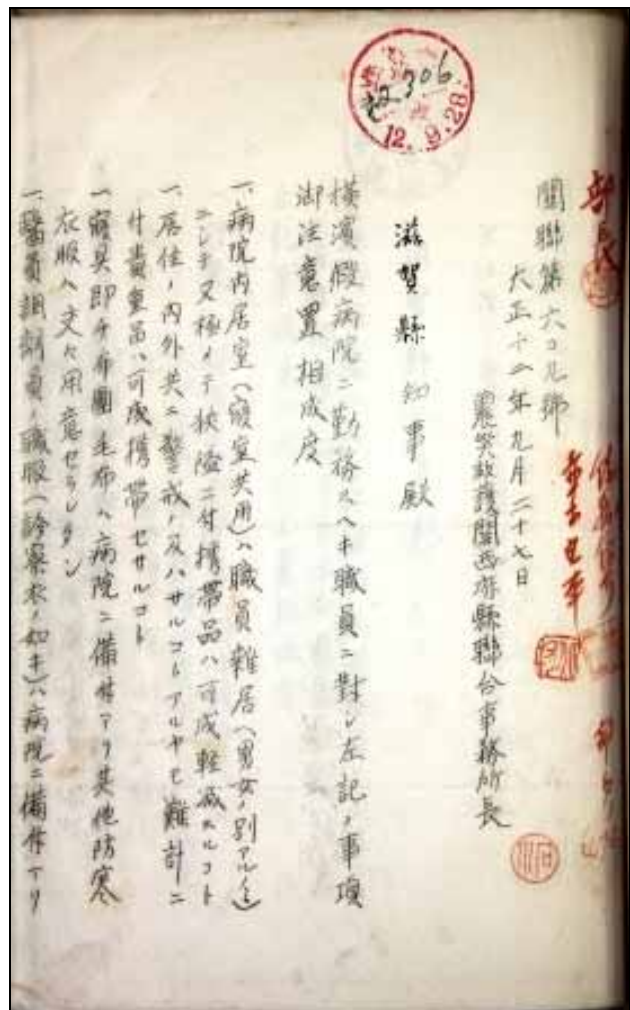 12.9.28.
2306.
部長
關聯第六〇九號
大正十二年九月二十七日
震災救護關西府縣聯合事務所長
滋賀縣知事殿
横濱假病院ニ勤務スヘキ職員ニ對シ左記ノ事項
御注意置相成度
一、病院内居室(寢室共用)ハ職員雜居(男女ノ別アルノミ)
ニシテ又極メテ狹隘ニ付携帶品ハ可成輕減スルコト
一、居住ノ内外共ニ警戒ノ及ハサルコトアルヤモ難計ニ
付貴重品ハ可成携帶セサルコト
一、寢具即チ布團毛布ハ病院ニ備付アリ其他防寒
衣服ハ交々用意セラレタシ
一、醫員調劑員ノ職服(診察衣ノ如キ)ハ病院ニ備付アリ